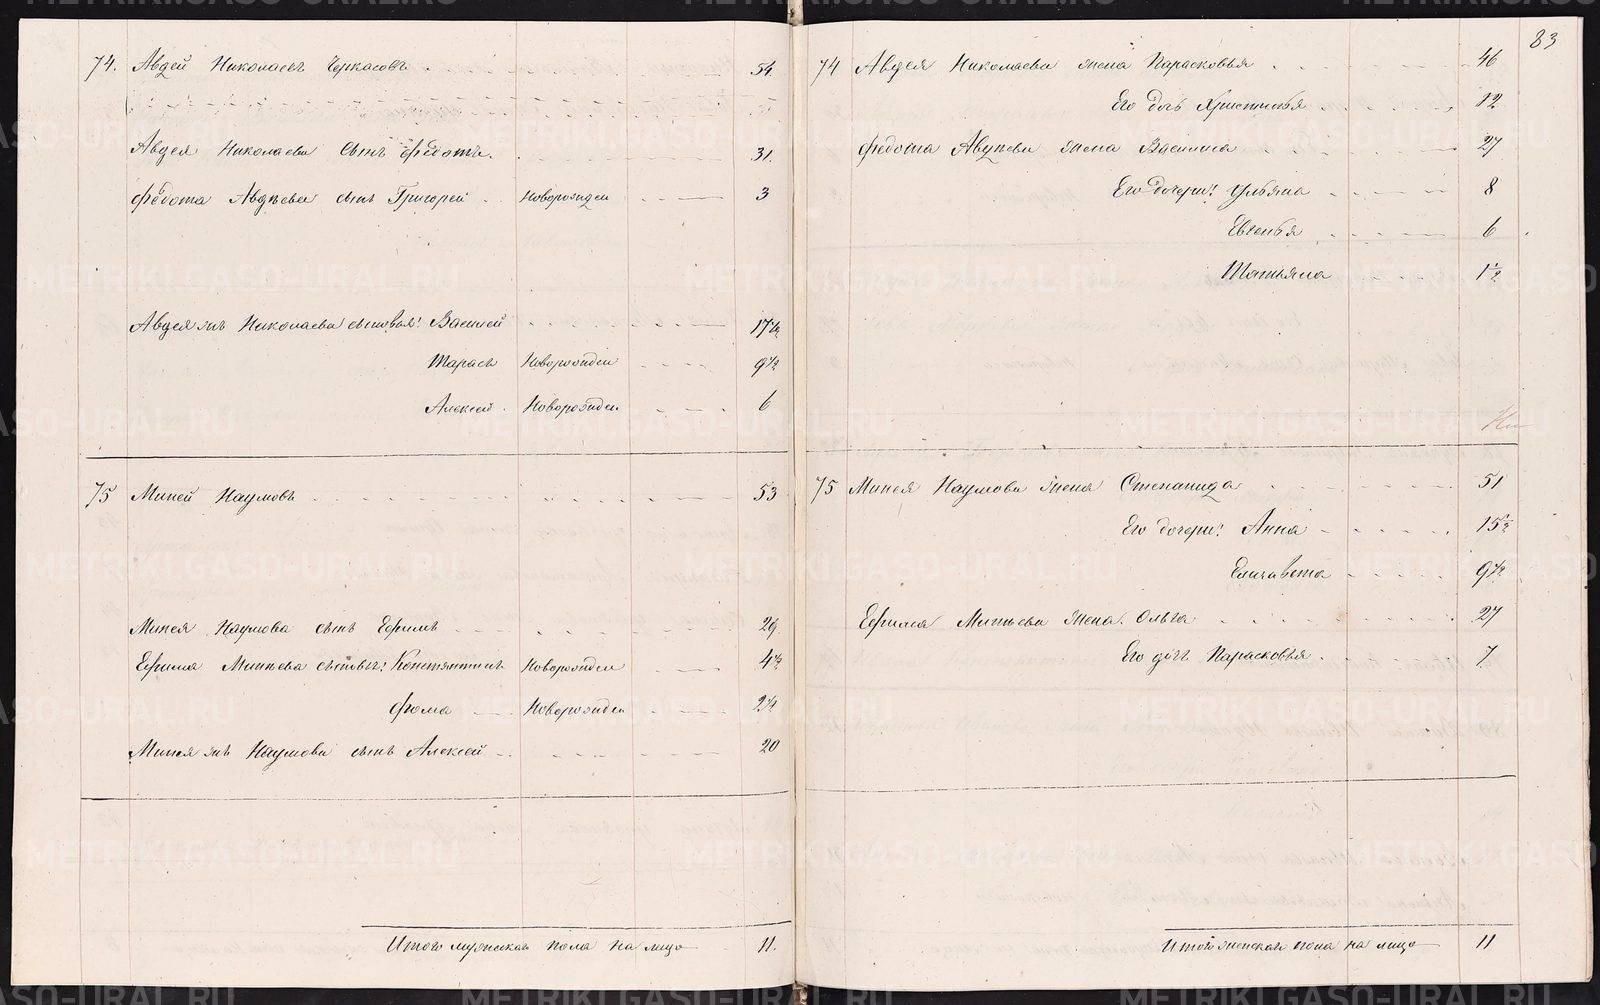 83
74. Авдей Николаевъ Черкасовъ 54
Авдея Николаева сынъ Федотъ. 31.
Федота Авдѣева сынъ Григорей Новорожден 3
Авдея жъ Николаева сыновья: Василей 17 1/2
Тарасъ Новорожден 9 1/2
Алексей Новорожден 6
75 Миней Наумовъ 53
Минея Наумова сынъ Ефимъ 29
Ефима Минѣева сыновья: Константинъ Новорожден 4 1/2
Фома Новорожден
Минея жъ Наумова сынъ Алексей 20
Итого мужеска пола на лицо 11.
74 Авдея Николаева жена Парасковья 46
Его дочь Христинья 12
Федота Авдѣева жена Василиса 27
Его дочери: Ульяна 8
Евгенья 6
Татьяна 1 1/2
75 Минея Наумова жена Степанида 51
Его дочери: Анна 15 1/2
Елизавета 9 1/2
Ефима Минѣева жена Ольга 27
Его дочь Парасковья 7
Итого женска пола на лицо 11
METRIKI.GASO-URAL.RU